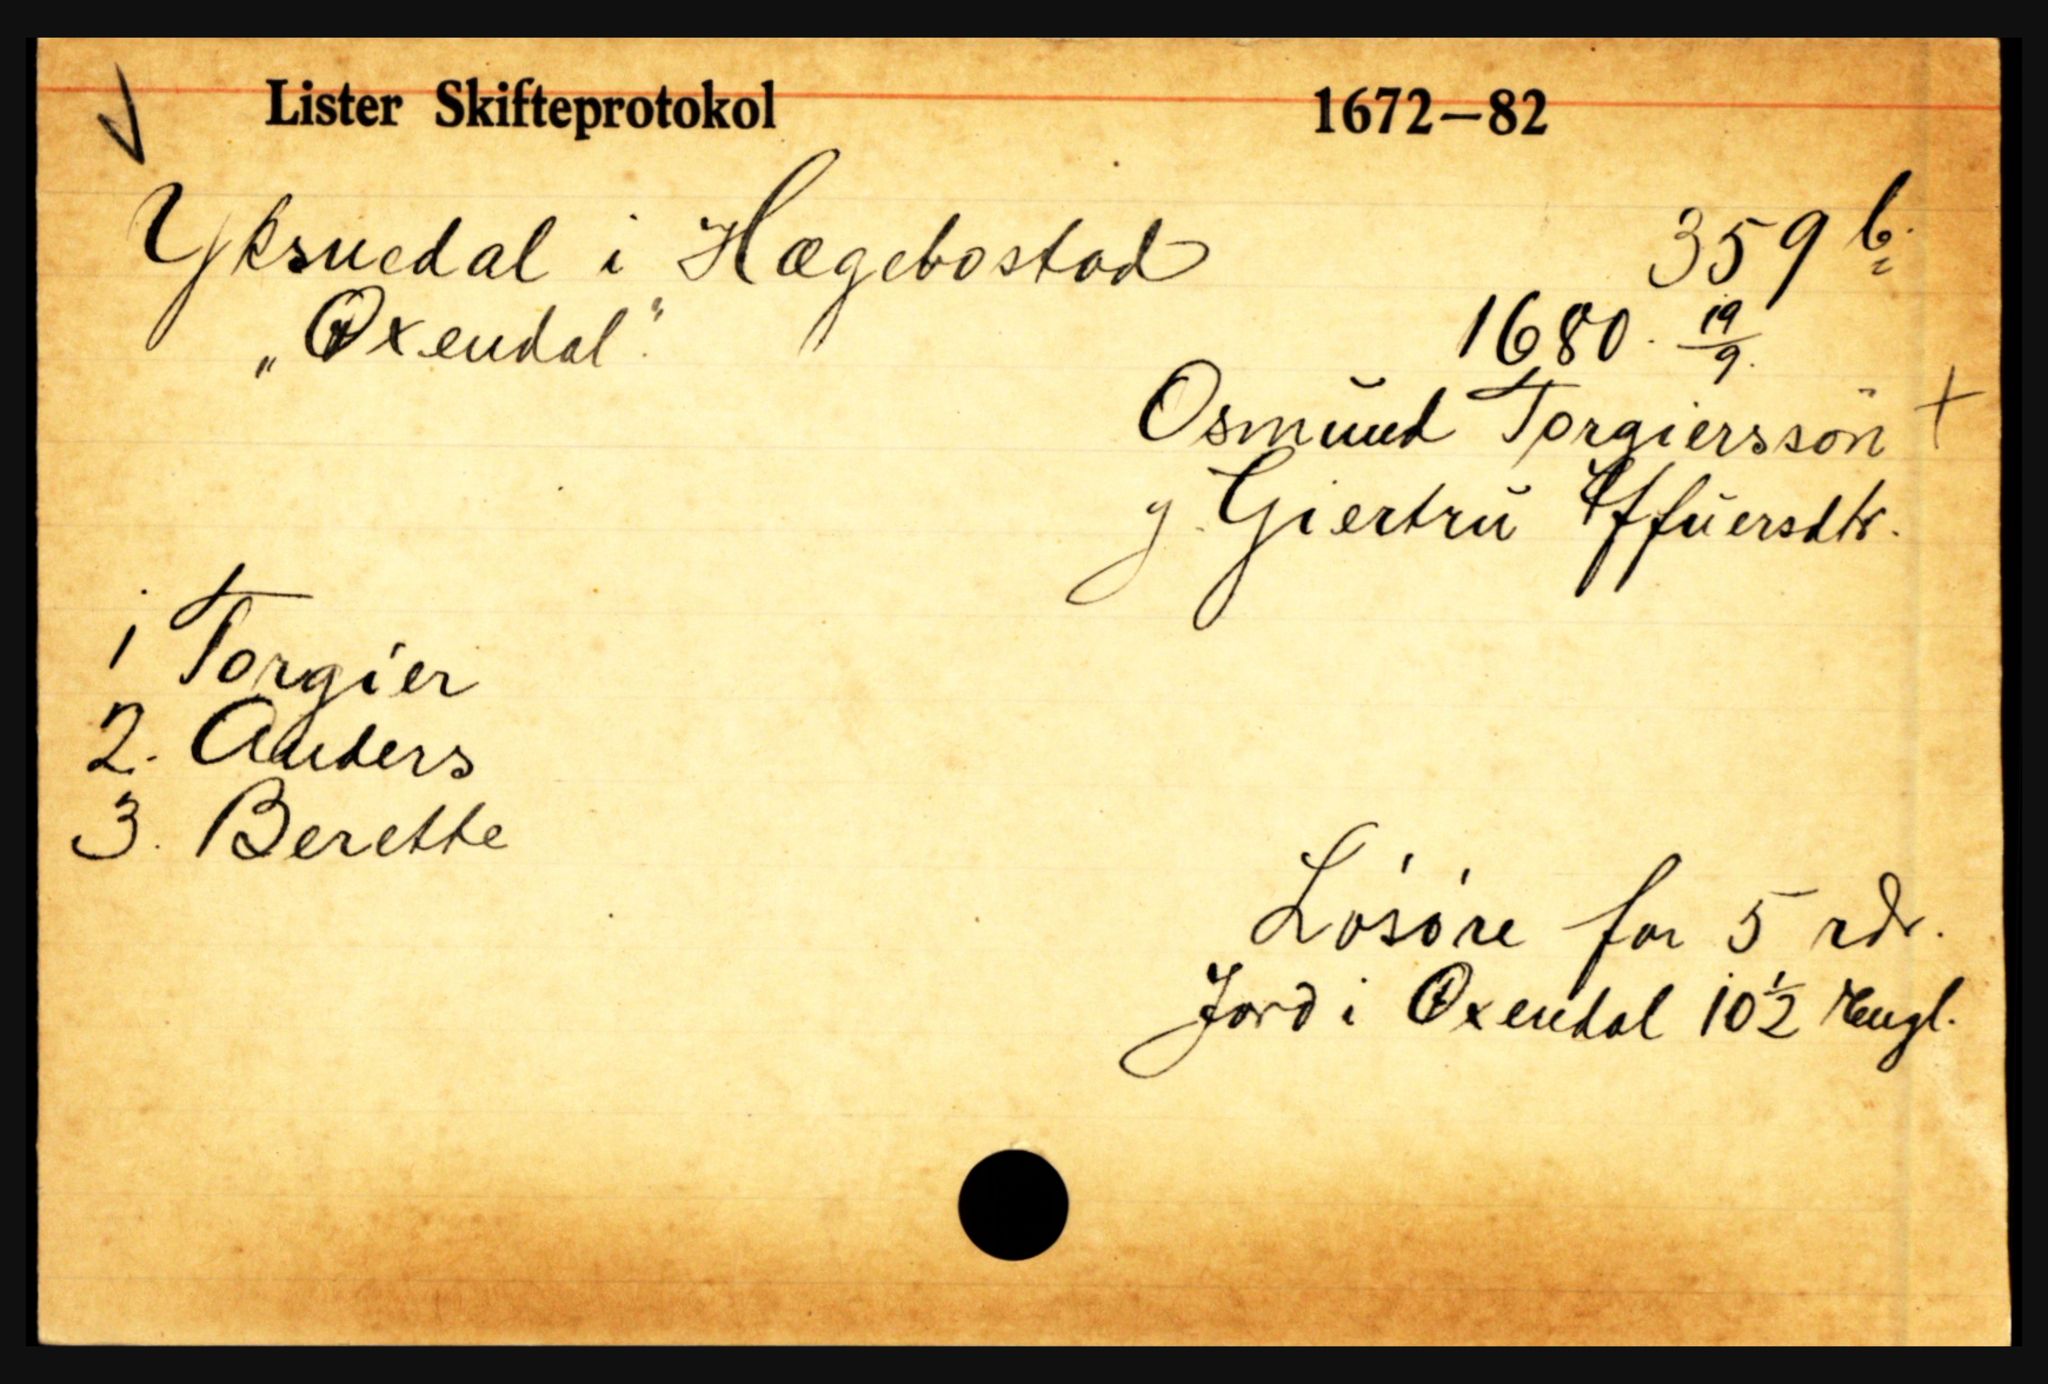 Lister Skifteprotokol 1672–82
Yksnedal i Hægebostad 359 b.
„Oxendal" 1680. 19/9.
Osmund Torgierssön +
g. Giertru Iffuersdtr.
1 Torgier
2. Anders
3. Berette
Løsøre for 5 rdr.
Jord i Oxendal 10½ engl.